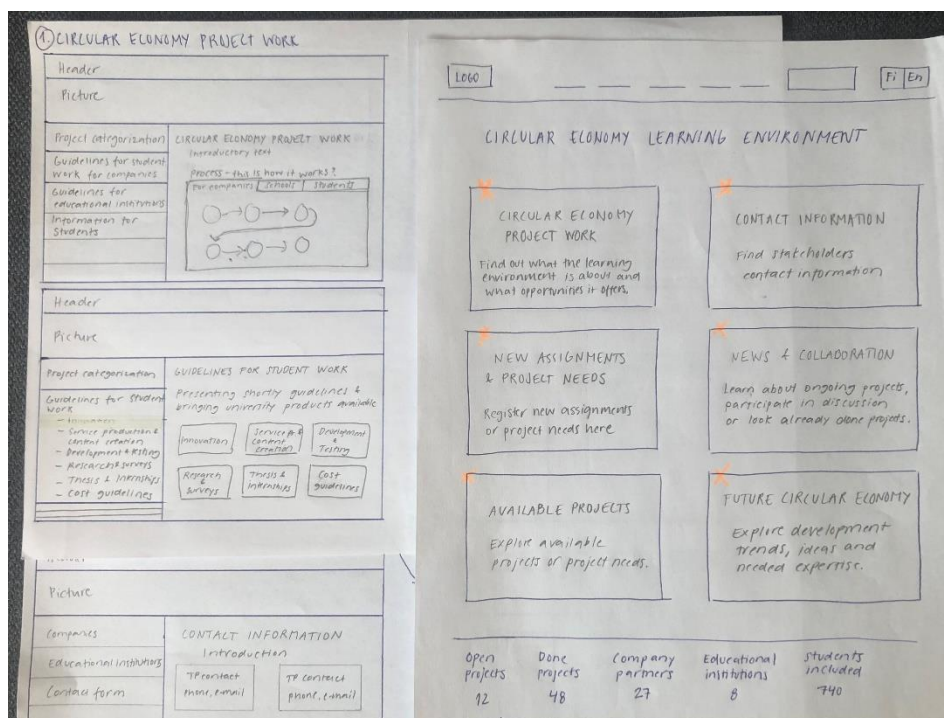 1. CIRCULAR ECONOMY PROJECT WORK
Header
Picture
Project categorization
Guidelines for student
work for companies
Guidelines for
educational institutions
Information for
students
CIRCULAR ECONOMY PROJECT WORK
Introductory text
process - this is how it works?
For companies
Schools
Students
Header
Picture
Project categorization
Guidelines for student
work
- Innovation
- Service production &
content creation
- Development & testing
- Research & surveys
- Thesis & Internships
- Cost guidelines
GUIDELINES FOR STUDENT WORK
Presenting shortly guidelines &
bringing university products available
Innovation
Service &
content
creation
Development
&
Testing
Research
&
surveys
Thesis &
internships
Cost
guidelines
Picture
Companies
Educational Institutions
Contact form
CONTACT INFORMATION
Introduction
TP contact
phone, e-mail
TP contact
phone, e-mail
LOGO
Fi En
CIRCULAR ECONOMY LEARNING ENVIRONMENT
CIRCULAR ECONOMY
PROJECT WORK
Find out what the learning
environment is about and
what opportunities it offers.
CONTACT INFORMATION
Find stakeholders
contact information
NEW ASSIGNMENTS
& PROJECT NEEDS
Register new assignments
or project needs here
NEWS & COLLABORATION
Learn about ongoing projects,
participate in discussion
or look already done projects.
AVAILABLE PROJECTS
Explore available
projects or project needs.
FUTURE CIRCULAR ECONOMY
Explore development
trends, ideas and
needed expertise.
Open
projects
12
Done
projects
48
Company
partners
27
Educational
institutions
8
Students
included
740